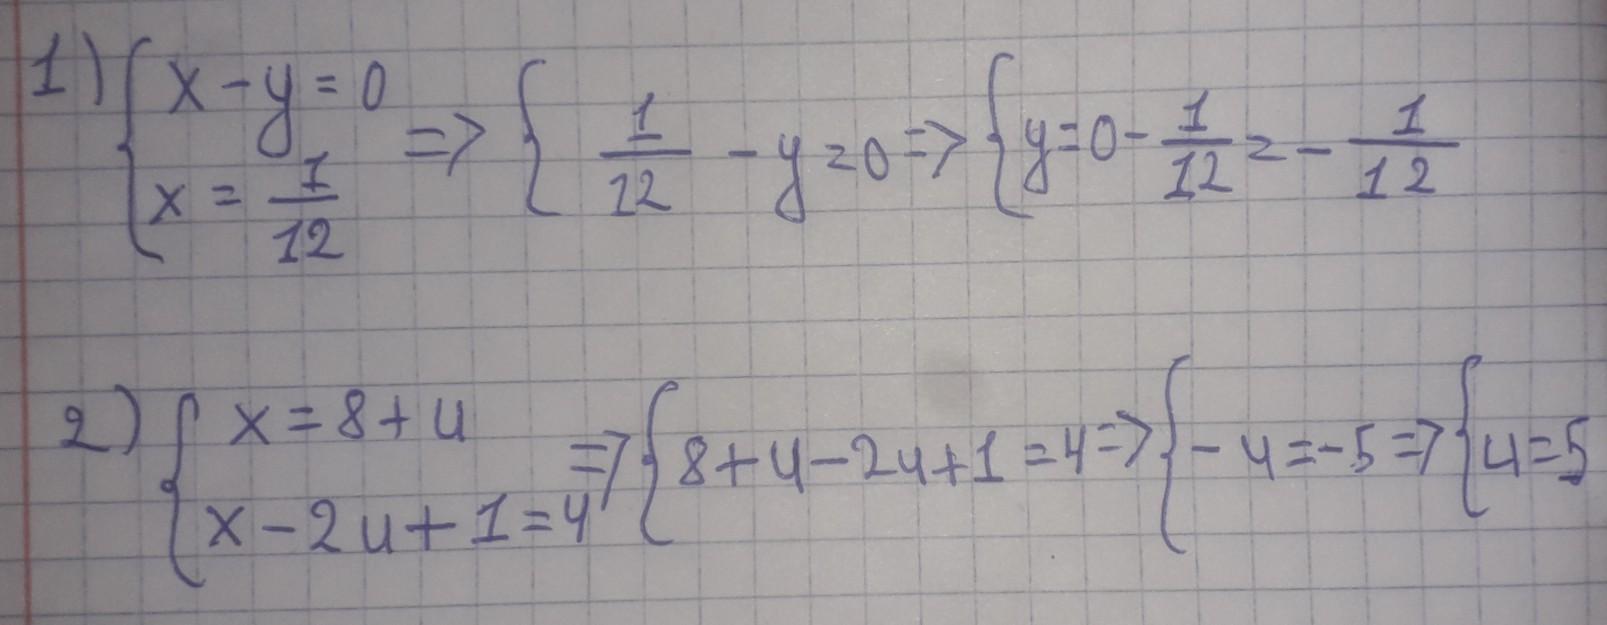 1) { x - y = 0
x = 1/12 => { 1/12 - y = 0 => { y = 0 - 1/12 = - 1/12
2) { x = 8 + u
x - 2u + 1 = 4 => { 8 + u - 2u + 1 = 4 => { - u = -5 => { u = 5